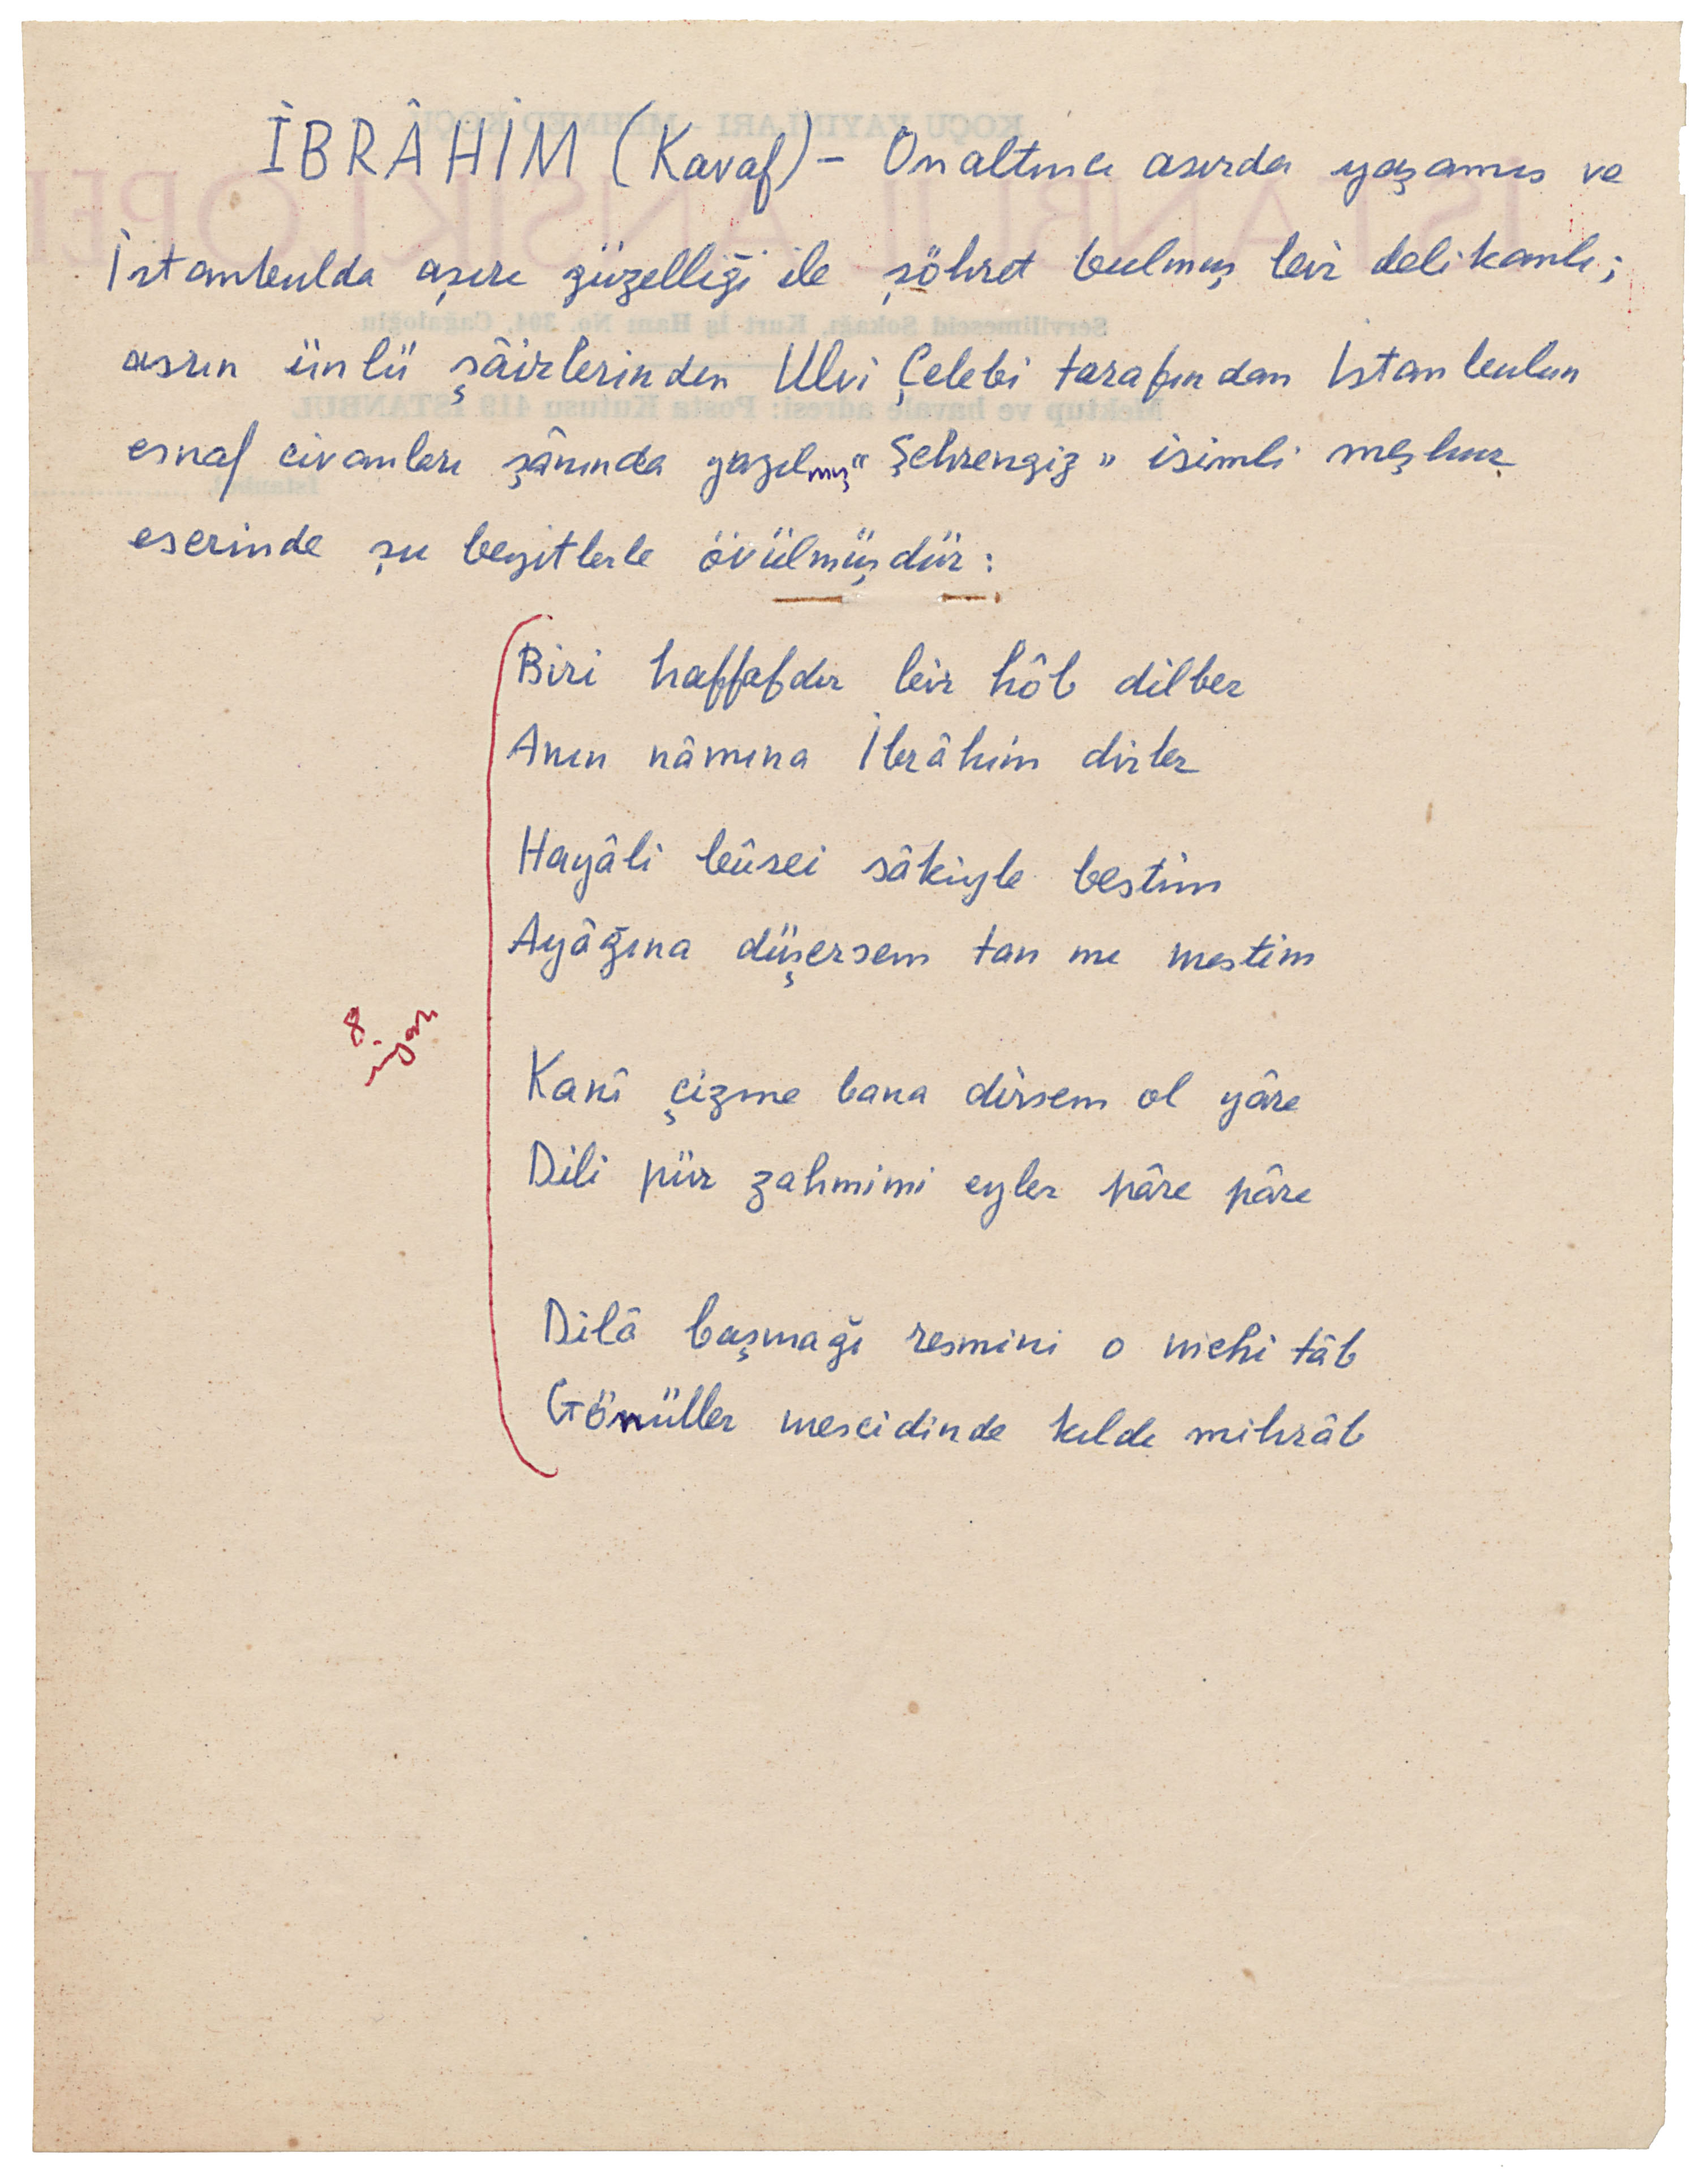 İBRÂHİM (Kavaf) - Onaltıncı asırda yaşamış ve
İstanbulda aşırı güzelliği ile şöhret bulmuş bir delikanlı;
asrın ünlü şâirlerinden Ulvi Çelebi tarafından İstanbulun
esnaf civanları şânında yazılmış "Şehrengiz" isimli meşhur
eserinde şu beyitlerle övülmüşdür:
Biri haffafdır bir hôb dilber
Anın nâmına İbrâhim dirler
Hayâli bûsei sâkiyle bestim
Ayâğına düşersem tan mı mestim
8. iyan
Kanî çizme bana dirsem ol yâre
Dili pür zahmimi eyler pâre pâre
Dilâ başmağı resmini o mehi tâb
Gönüller mescidinde kıldı mihrâb
KOÇU YAYINLARI - MEHMED KOÇU
İSTANBUL ANSİKLOPE
Servilimescid Sokağı, Kurt İş Hanı No. 304, Cağaloğlu
Mektup ve havale adresi: Posta Kutusu 419 İSTANBUL
İstanbul,